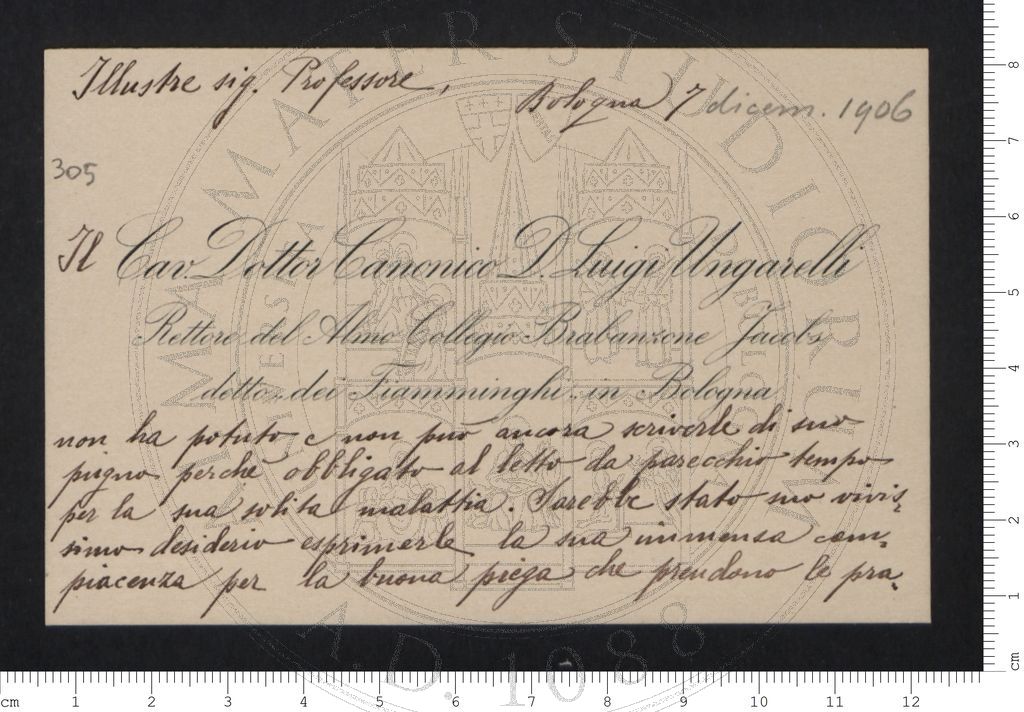 Illustre sig. Professore,
Bologna 7 dicem. 1906
305
Il Cav. Dottor Canonico D. Luigi Ungarelli
Rettore del Almo Collegio Brabanzone Jacobs
detto dei Fiamminghi in Bologna
non ha potuto e non può ancora scriverle di suo
pugno perchè obbligato al letto da parecchio tempo
per la sua solita malattia. Sarebbe stato suo vivis-
simo desiderio esprimerle la sua immensa com-
piacenza per la buona piega che prendono le pra-
ALMA MATER STUDIORUM
A.D. 1088
cm 1 2 3 4 5 6 7 8 9 10 11 12
8
7
6
5
4
3
2
1
cm